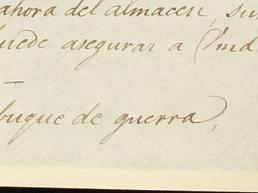 ahora del almacen, su
puede asegurar a Ind
buque de guerra,